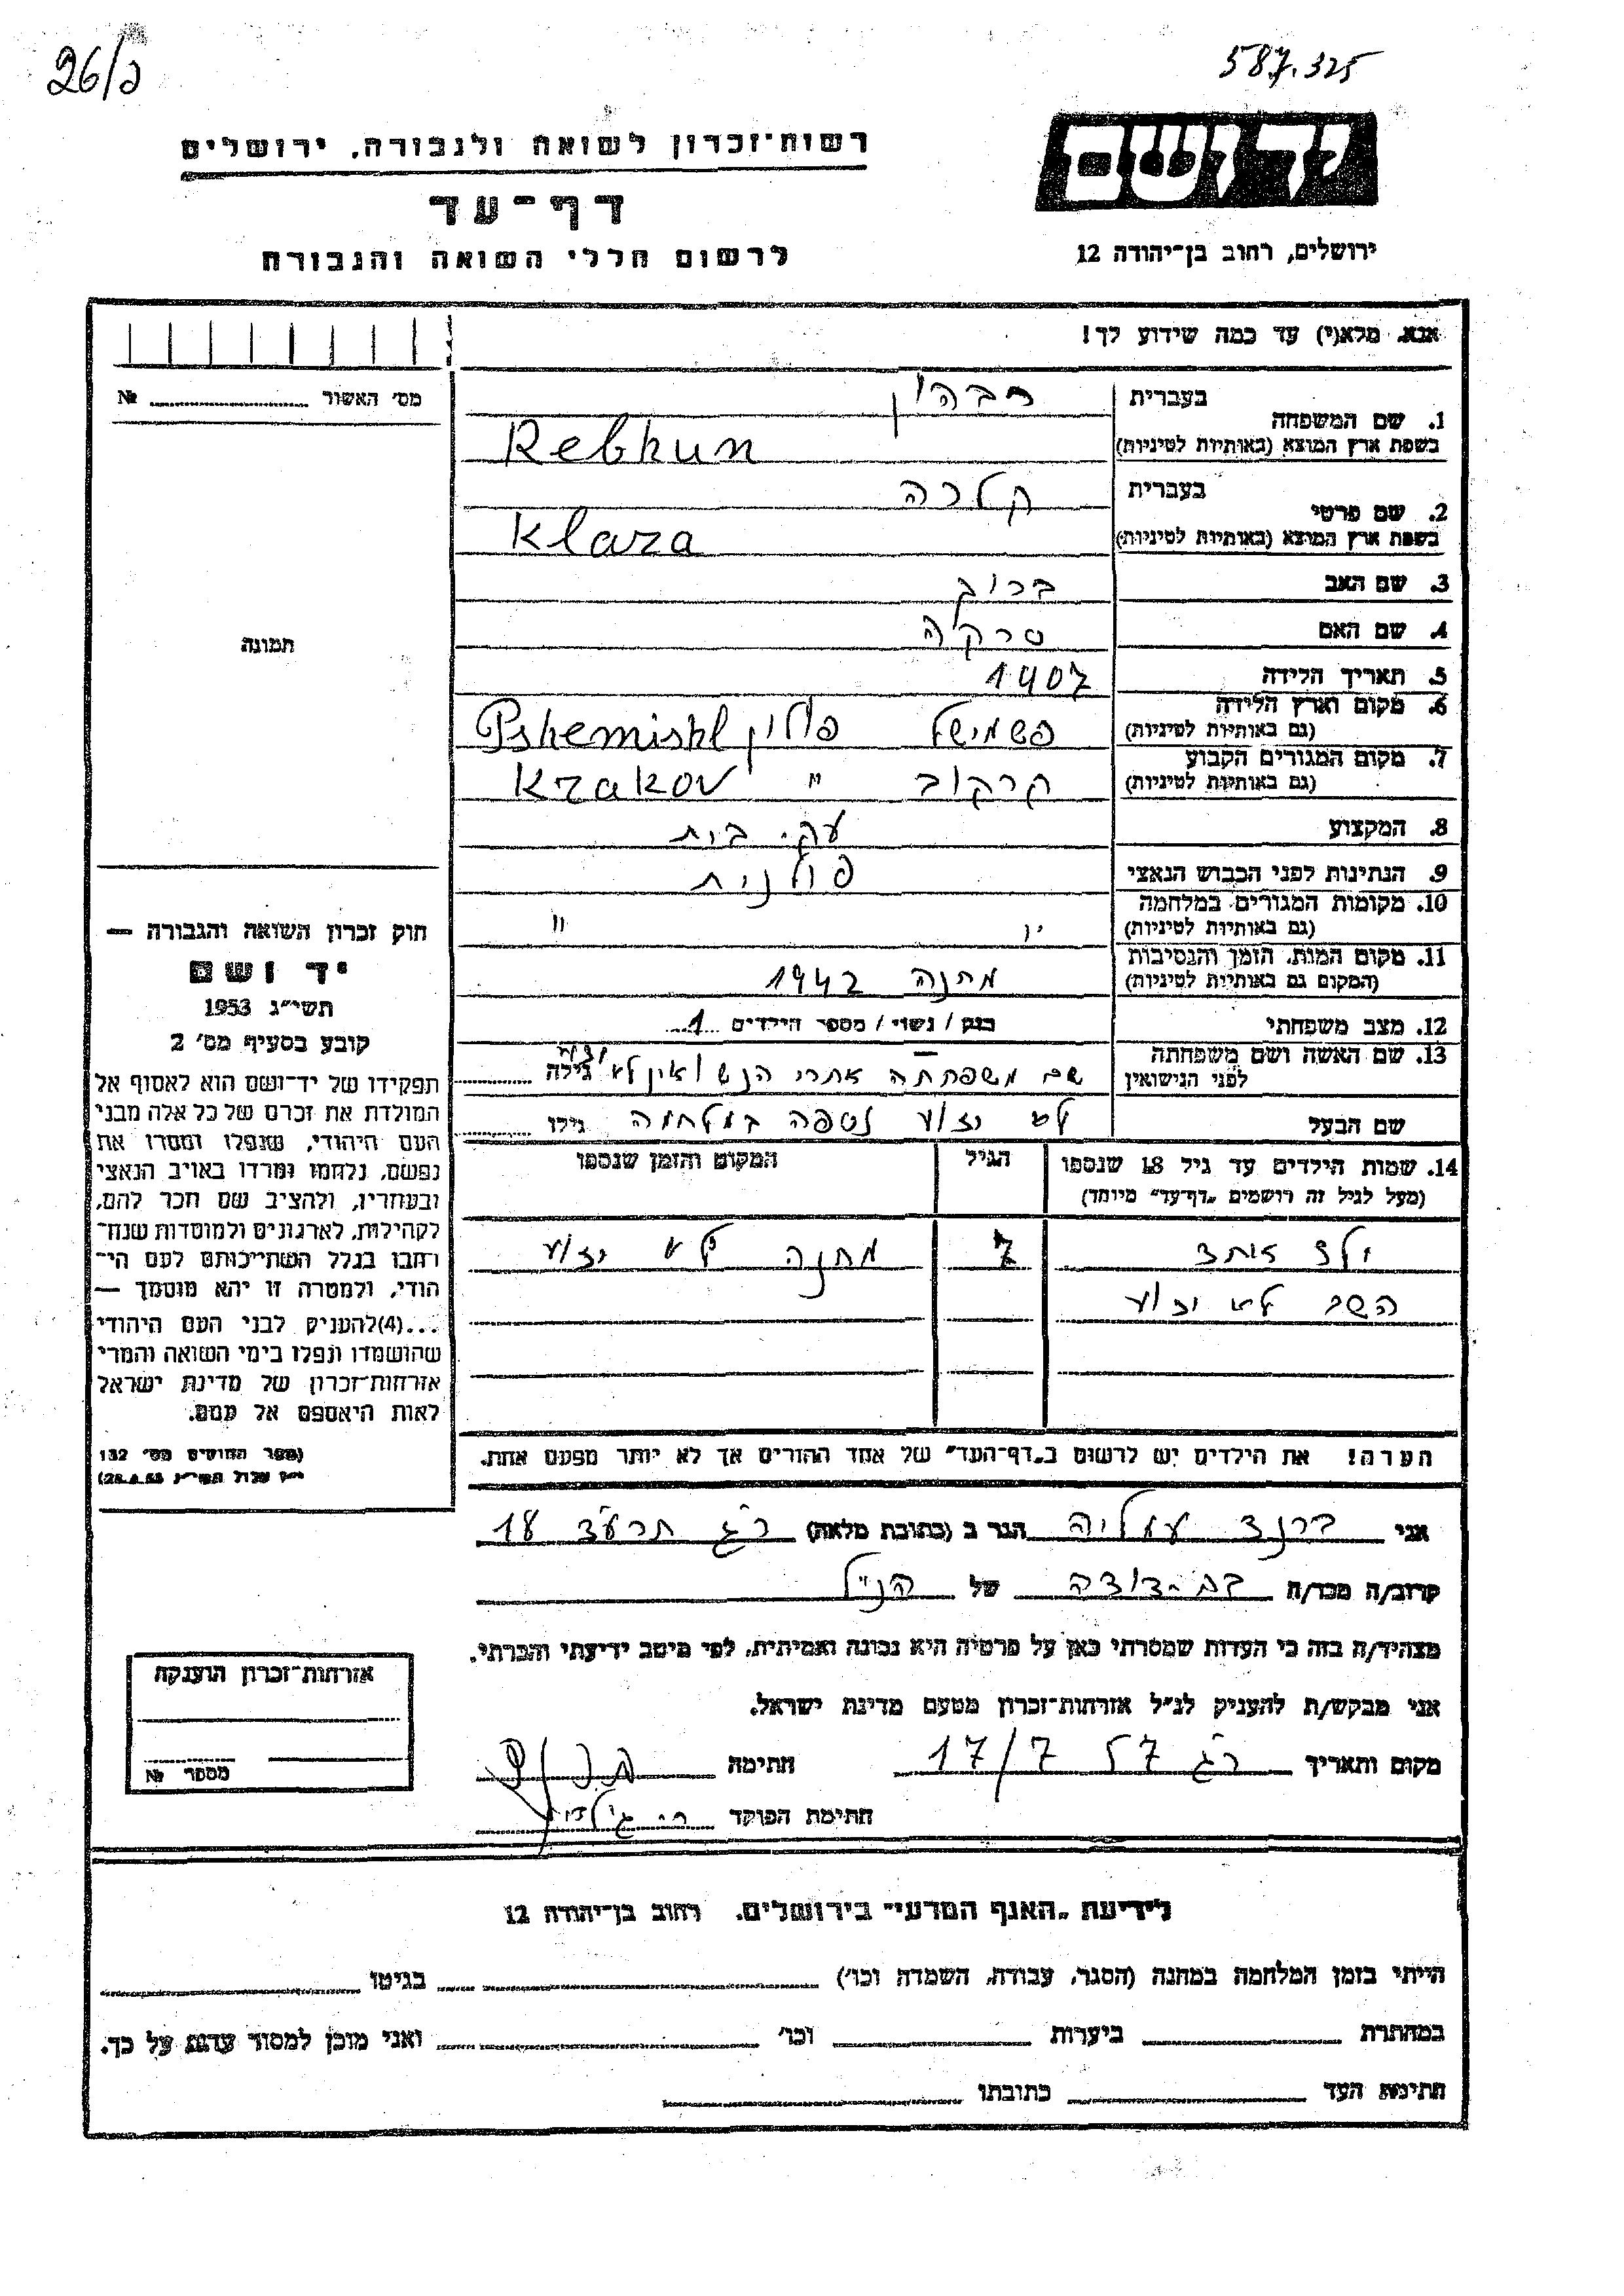 26/כ
587.325
רשות־זכרון לשואה ולגבורה, ירושלים
דף־עד
לרשום חללי השואה והגבורה
יד ושם
ירושלים, רחוב בן־יהודה 12
אנא, מלא(י) עד כמה שידוע לך!
מס׳ האשור № 
1. שם המשפחה
בעברית רבהון
בשפת ארץ המוצא (באותיות לטיניות) Rebhun
2. שם פרטי
בעברית קלרה
בשפת ארץ המוצא (באותיות לטיניות) Klara
3. שם האב ברוך
4. שם האם
5. תאריך הלידה 1907
6. מקום וארץ הלידה
(גם באותיות לטיניות) פשמישל פולין Pshemishl
7. מקום המגורים הקבוע
(גם באותיות לטיניות) קרקוב " Krakov
8. המקצוע עק. בית
9. הנתינות לפני הכבוש הנאצי פולנית
10. מקומות המגורים במלחמה
(גם באותיות לטיניות) " "
11. מקום המות, הזמן והנסיבות
(המקום גם באותיות לטיניות) מחנה 1942
12. מצב משפחתי רנק / נשוי / מספר הילדים 1
13. שם האשה ושם משפחתה
לפני הנישואין שם משפחתה אחרי הנשואין לא ידוע גילה
שם הבעל לא ידוע נספה במלחמה גילו
14. שמות הילדים עד גיל 18 שנספו
(מעל לגיל זה רושמים „דף־עד״ מיוחד)
הגיל
המקום והזמן שנספו
ילד אחד 7 מחנה לא ידוע
השם לא ידוע
הערה! את הילדים יש לרשום ב„דף־העד״ של אחד ההורים אך לא יותר מפעם אחת.
תמונה
חוק זכרון השואה והגבורה —
יד ושם
תשי״ג 1953
קובע בסעיף מס׳ 2
תפקידו של יד־ושם הוא לאסוף אל
המולדת את זכרם של כל אלה מבני
העם היהודי, שנפלו ומסרו את
נפשם, נלחמו ומרדו באויב הנאצי
ובעוזריו, ולהציב שם וזכר להם,
לקהילות, לארגונים ולמוסדות שנח־
רבו בגלל השתייכותם לעם הי־
הודי, ולמטרה זו יהא מוסמך —
...(4)להעניק לבני העם היהודי
שהושמדו ונפלו בימי השואה והמרי
אזרחות־זכרון של מדינת ישראל
לאות היאספם אל עמם.
(ספר החוקים מס׳ 132
י״ז אלול תשי״ג 28.8.53)
אני ברנד עליה הגר ב (כתובת מלאה) ר״ג תרע״ד 18
קרוב/ה מכר/ה בת-דודה של הנ״ל
מצהיר/ה בזה כי העדות שמסרתי כאן על פרטיה היא נכונה ואמיתית, לפי מיטב ידיעתי והכרתי.
אני מבקש/ת להעניק לנ״ל אזרחות־זכרון מטעם מדינת ישראל.
מקום ותאריך ר״ג 17/7 57 חתימה
חתימת הפוקד
אזרחות־זכרון הוענקה
מספר №
לידיעת „האגף המדעי״ בירושלים, רחוב בן־יהודה 12
הייתי בזמן המלחמה במחנה (הסגר, עבודה, השמדה וכו׳) בגיטו
במחתרת ביערות וכו׳ ואני מוכן למסור עדות על כך.
חתימת העד כתובתו